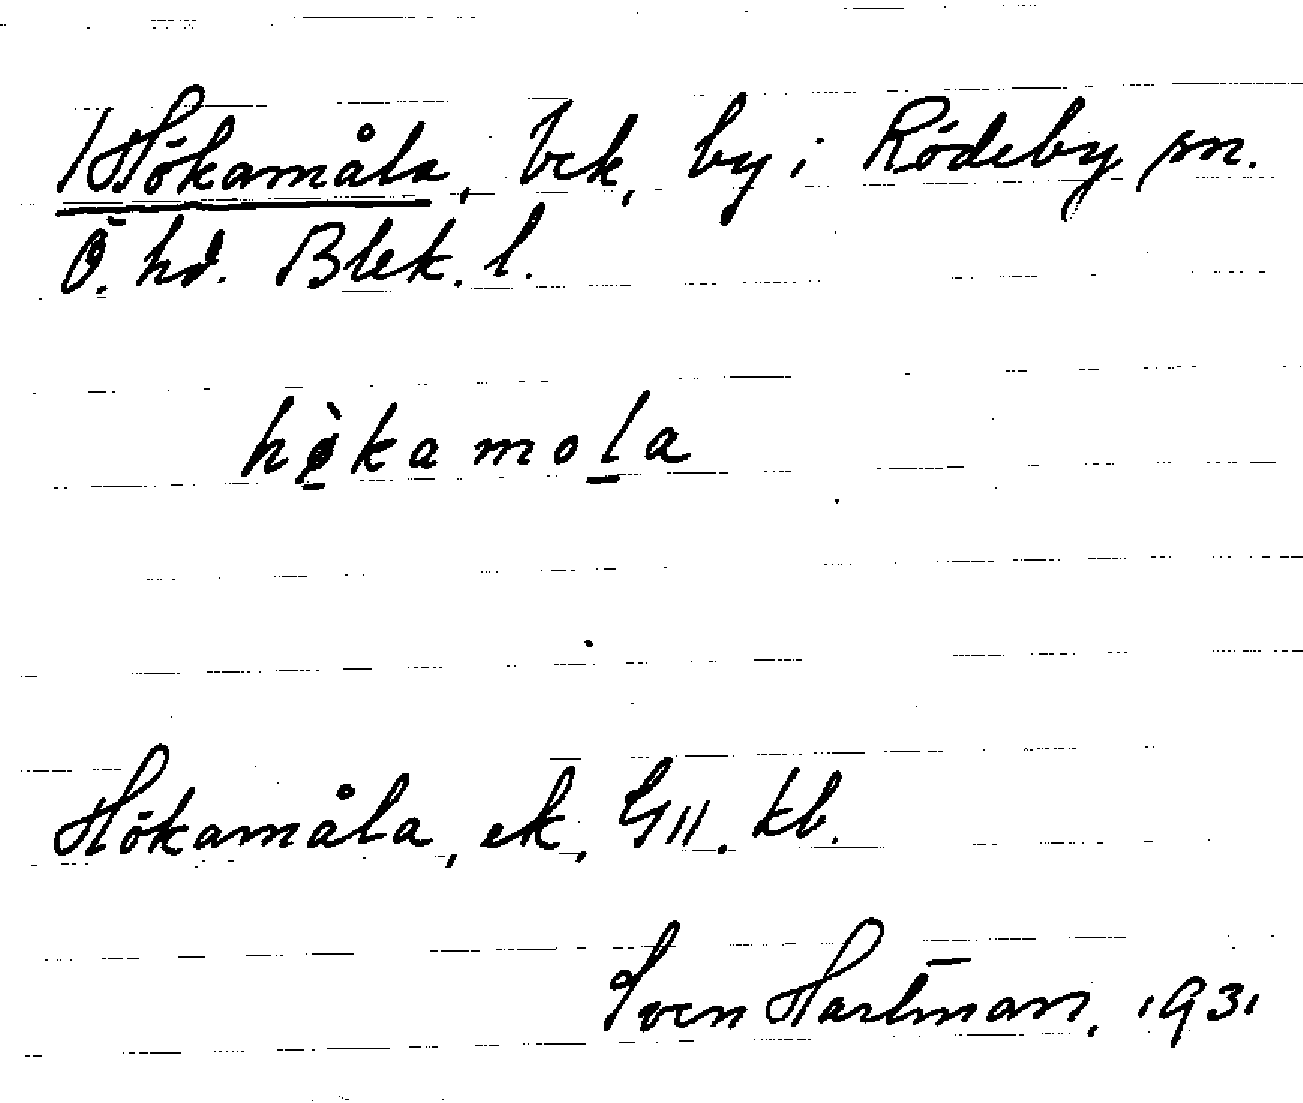 1 Hökamåla, bck, by i Rödeby sn.
Ö. hd. Blek. l.
hø̀kamola
Hökamåla, ek, GII. kb.
Sven Hartman, 1931